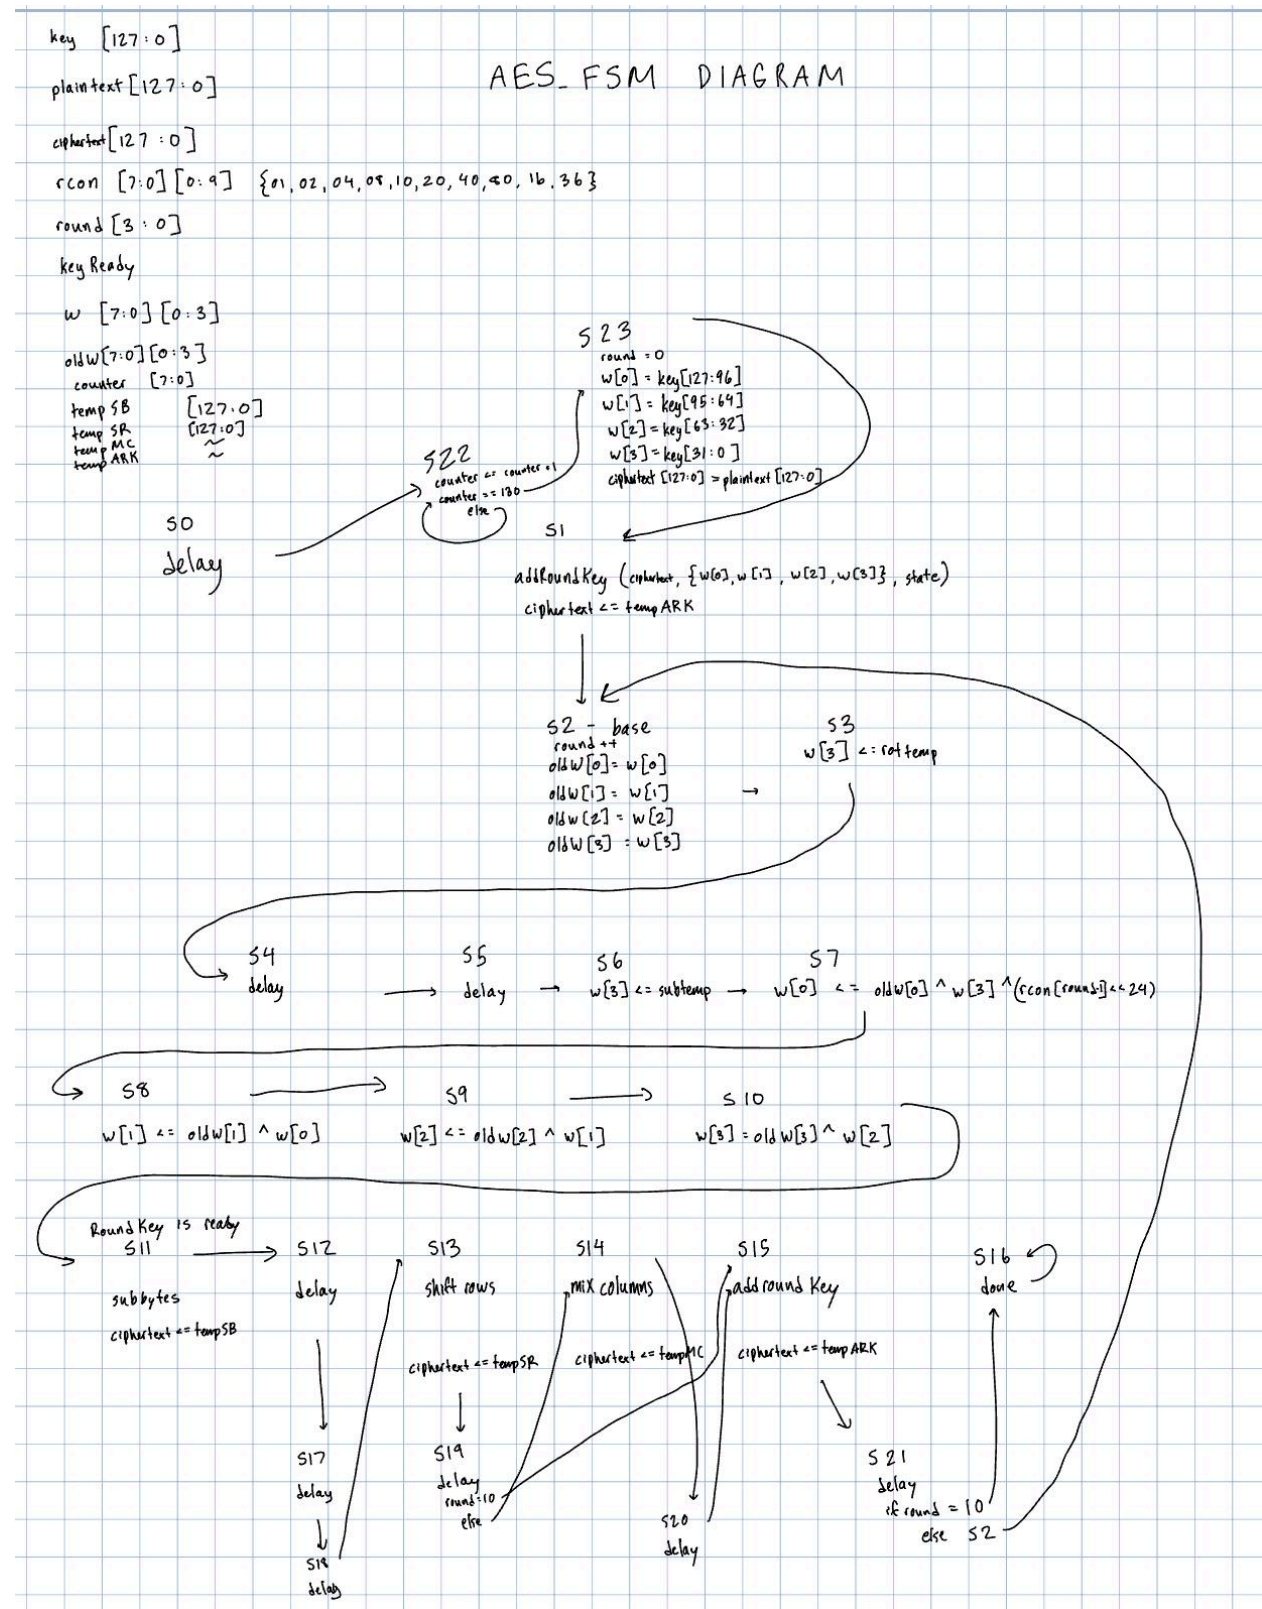 key [127:0]
AES_FSM DIAGRAM
plaintext [127:0]
ciphertext [127:0]
rcon [7:0] [0:9] {01, 02, 04, 08, 10, 20, 40, 80, 1b, 36}
round [3:0]
key Ready
w [7:0] [0:3]
oldw [7:0] [0:3]
counter [7:0]
temp SB [127:0]
temp SR [127:0]
temp MC ~
temp ARK ~
S23
round = 0
w[0] = key[127:96]
w[1] = key[95:64]
w[2] = key[63:32]
w[3] = key[31:0]
ciphertext [127:0] = plaintext [127:0]
S22
counter <= counter+1
counter == 130
else
S0
delay
S1
addRoundKey (ciphertext, {w[0], w[1], w[2], w[3]}, state)
ciphertext <= tempARK
S2 - base
round ++
oldw[0] = w[0]
oldw[1] = w[1]
oldw[2] = w[2]
oldw[3] = w[3]
S3
w[3] <= rottemp
S4
delay
S5
delay
S6
w[3] <= subtemp
S7
w[0] <= oldw[0] ^ w[3] ^ (rcon[round-1] << 24)
S8
w[1] <= oldw[1] ^ w[0]
S9
w[2] <= oldw[2] ^ w[1]
S10
w[3] = oldw[3] ^ w[2]
Round Key is ready
S11
subbytes
ciphertext <= tempSB
S12
delay
S13
shift rows
ciphertext <= tempSR
S14
mix columns
ciphertext <= tempMC
S15
add round key
ciphertext <= tempARK
S16
done
S17
delay
S18
delay
S19
delay
round=10
else
S20
delay
S21
delay
if round = 10
else S2